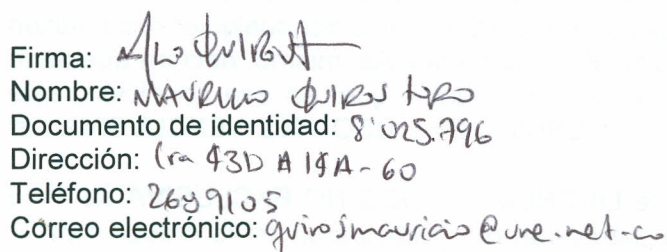 Firma: 
Nombre: MAURICIO QUIROS TORO
Documento de identidad: 8'025.796
Dirección: Cra 43D # 19A-60
Teléfono: 2659105
Correo electrónico: quirosmauricio@une.net.co